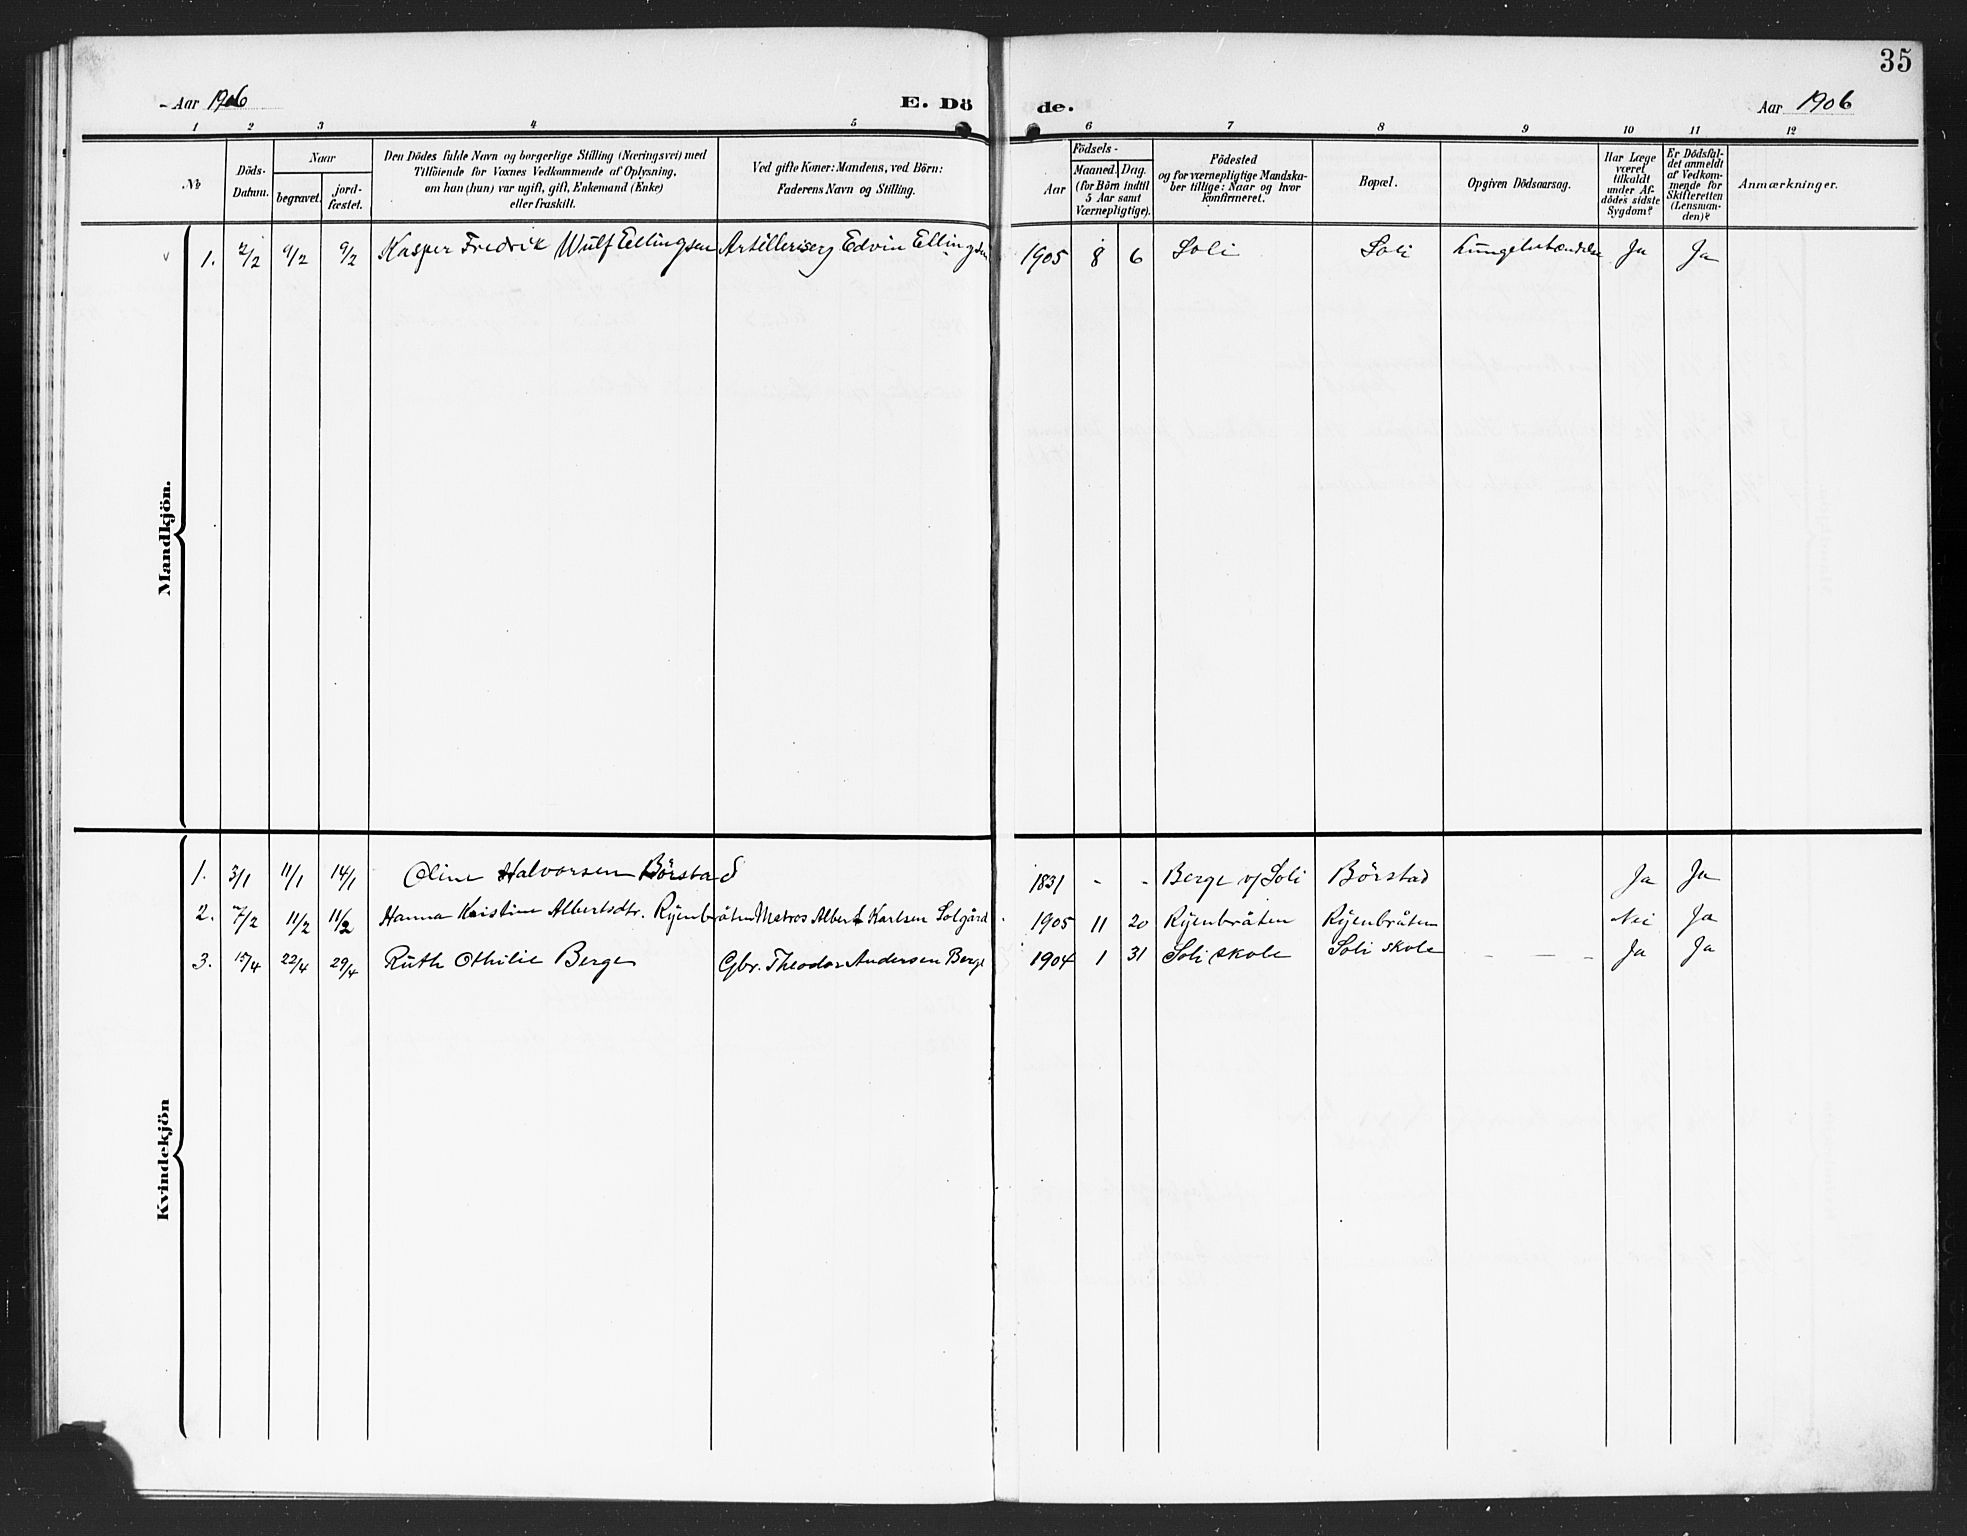 35
Aar 1906 E. Dö de. Aar 1906
1 2 3 4 5 6 7 8 9 10 11 12
No
Döds-Datum.
Naar
begravet. jord-fæstet.
Den Dödes fulde Navn og borgerlige Stilling (Næringsvei) med
Tilföiende for Voxnes Vedkommende af Oplysning,
om han (hun) var ugift, gift, Enkemand (Enke)
eller fraskilt.
Ved gifte Koner: Mandens, ved Börn:
Faderens Navn og Stilling.
Födsels-
Aar
Maaned. Dag.
(for Börn indtil
5 Aar samt
Værnepligtige).
Födested
og for værnepligtige Mandska-
ber tillige: Naar og hvor
konfirmeret.
Bopæl.
Opgiven Dödsaarsag.
Har Læge
været
tilkaldt
under Af-
dödes sidste
Sygdom?
Er Dödsfal-
det anmeldt
af Vedkom-
mende for
Skifteretten
(Lensman-
den)?
Anmærkninger.
Mandkjön.
1. 2/2 9/2 9/2 Kasper Fredrik Wulf Ellingsen Artelleriserg Edvin Ellingsen 1905 8 6 Soli Soli Lungebetændelse Ja Ja
Kvindekjön
1. 3/1 11/1 14/1 Oline Halvorsen Börstad 1831 - - Berge v/ Soli Börstad Ja Ja
2. 7/2 11/2 11/2 Hanna Kristine Albertsdtr. Ryenbråten Matros Albert Karlsen Solgård 1905 11 20 Ryenbråten Ryenbråten Nei Ja
3. 15/4 22/4 29/4 Ruth Othilie Berge Gbr. Theodor Andersen Berge 1904 1 31 Soli skole Soli skole - - - Ja Ja